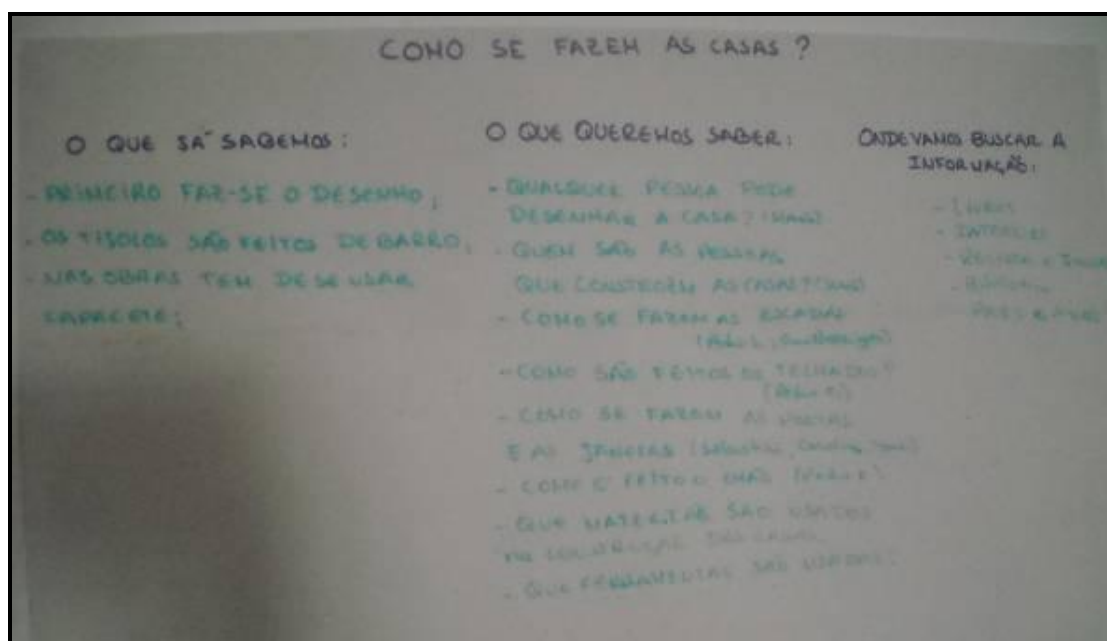 COMO SE FAZEM AS CASAS?
O QUE JÁ SABEMOS:
- PRIMEIRO FAZ-SE O DESENHO;
- OS TIJOLOS SÃO FEITOS DE BARRO;
- NAS OBRAS TEM DE SE USAR
CAPACETE;
O QUE QUEREMOS SABER:
- QUALQUER PESSOA PODE
DESENHAR A CASA?
- QUEM SÃO AS PESSOAS
QUE CONSTROEM AS CASAS?
- COMO SE FAZEM AS ESCADAS
- COMO SÃO FEITOS OS TELHADOS?
- COMO SE FAZEM AS PORTAS
E AS JANELAS
- COMO É FEITO O CHÃO
- QUE MATERIAIS SÃO USADOS
NA CONSTRUÇÃO DAS CASAS
- QUE FERRAMENTAS SÃO USADAS
ONDE VAMOS BUSCAR A
INFORMAÇÃO:
- LIVROS
- INTERNET